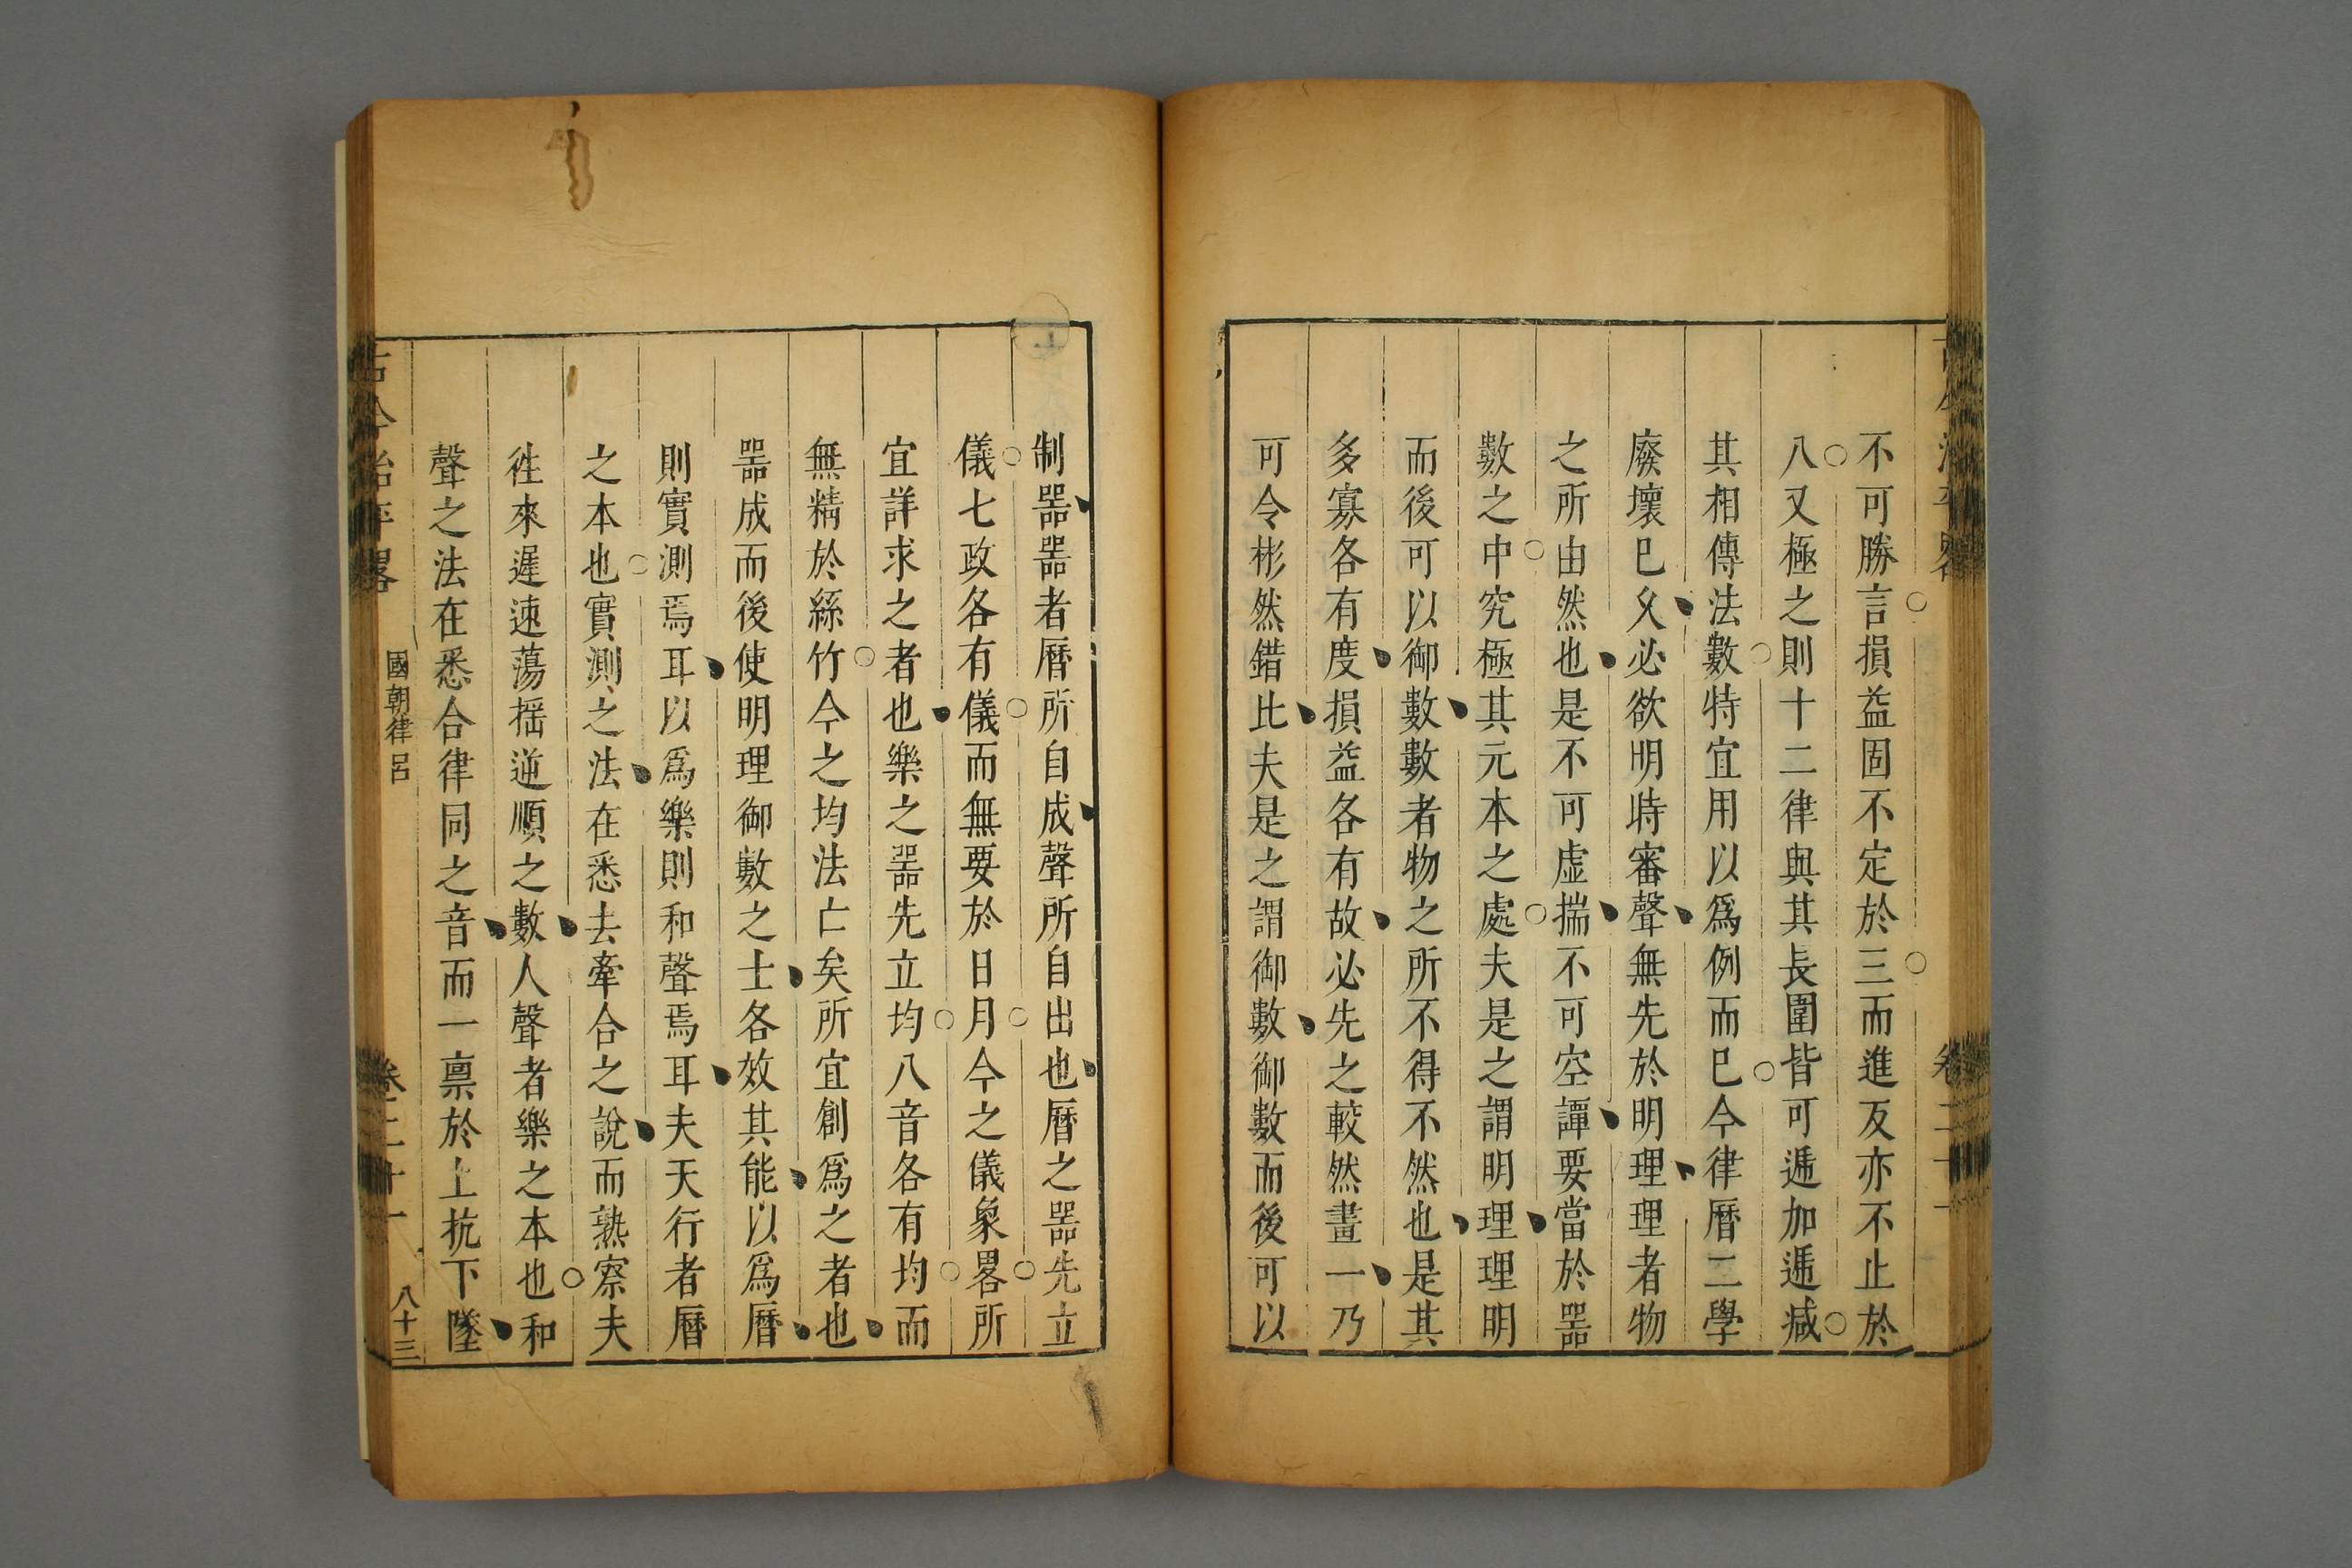 不可勝言損益固不定於三而進反亦不止於
八又極之則十二律與其長圍皆可遞加遞减
其相傳法數特宜用以爲例而已今律曆二學
廢壞已久必欲明時審聲無先於明理理者物
之所由然也是不可虛揣不可空譚要當於噐
數之中究極其元本之處夫是之謂明理理明
而後可以御數數者物之所不得不然也是其
多寡各有度損益各有故必先之較然畫一乃
可令彬然錯比夫是之謂御數御數而後可以
制噐噐者曆所自成聲所自出也曆之噐先立
儀七政各有儀而無要於日月今之儀象畧所
宜詳求之者也樂之噐先立均八音各有均而
無精於絲竹今之均法亡矣所宜創爲之者也
噐成而後使明理御數之士各效其能以爲曆
則實測焉耳以爲樂則和聲焉耳夫天行者曆
之本也實測之法在悉去牽合之說而熟察夫
徃來遲速蕩揺逆順之數人聲者樂之本也和
聲之法在悉合律同之音而一禀於上抗下墜
古今治平畧
國朝律呂
卷二十一
八十三